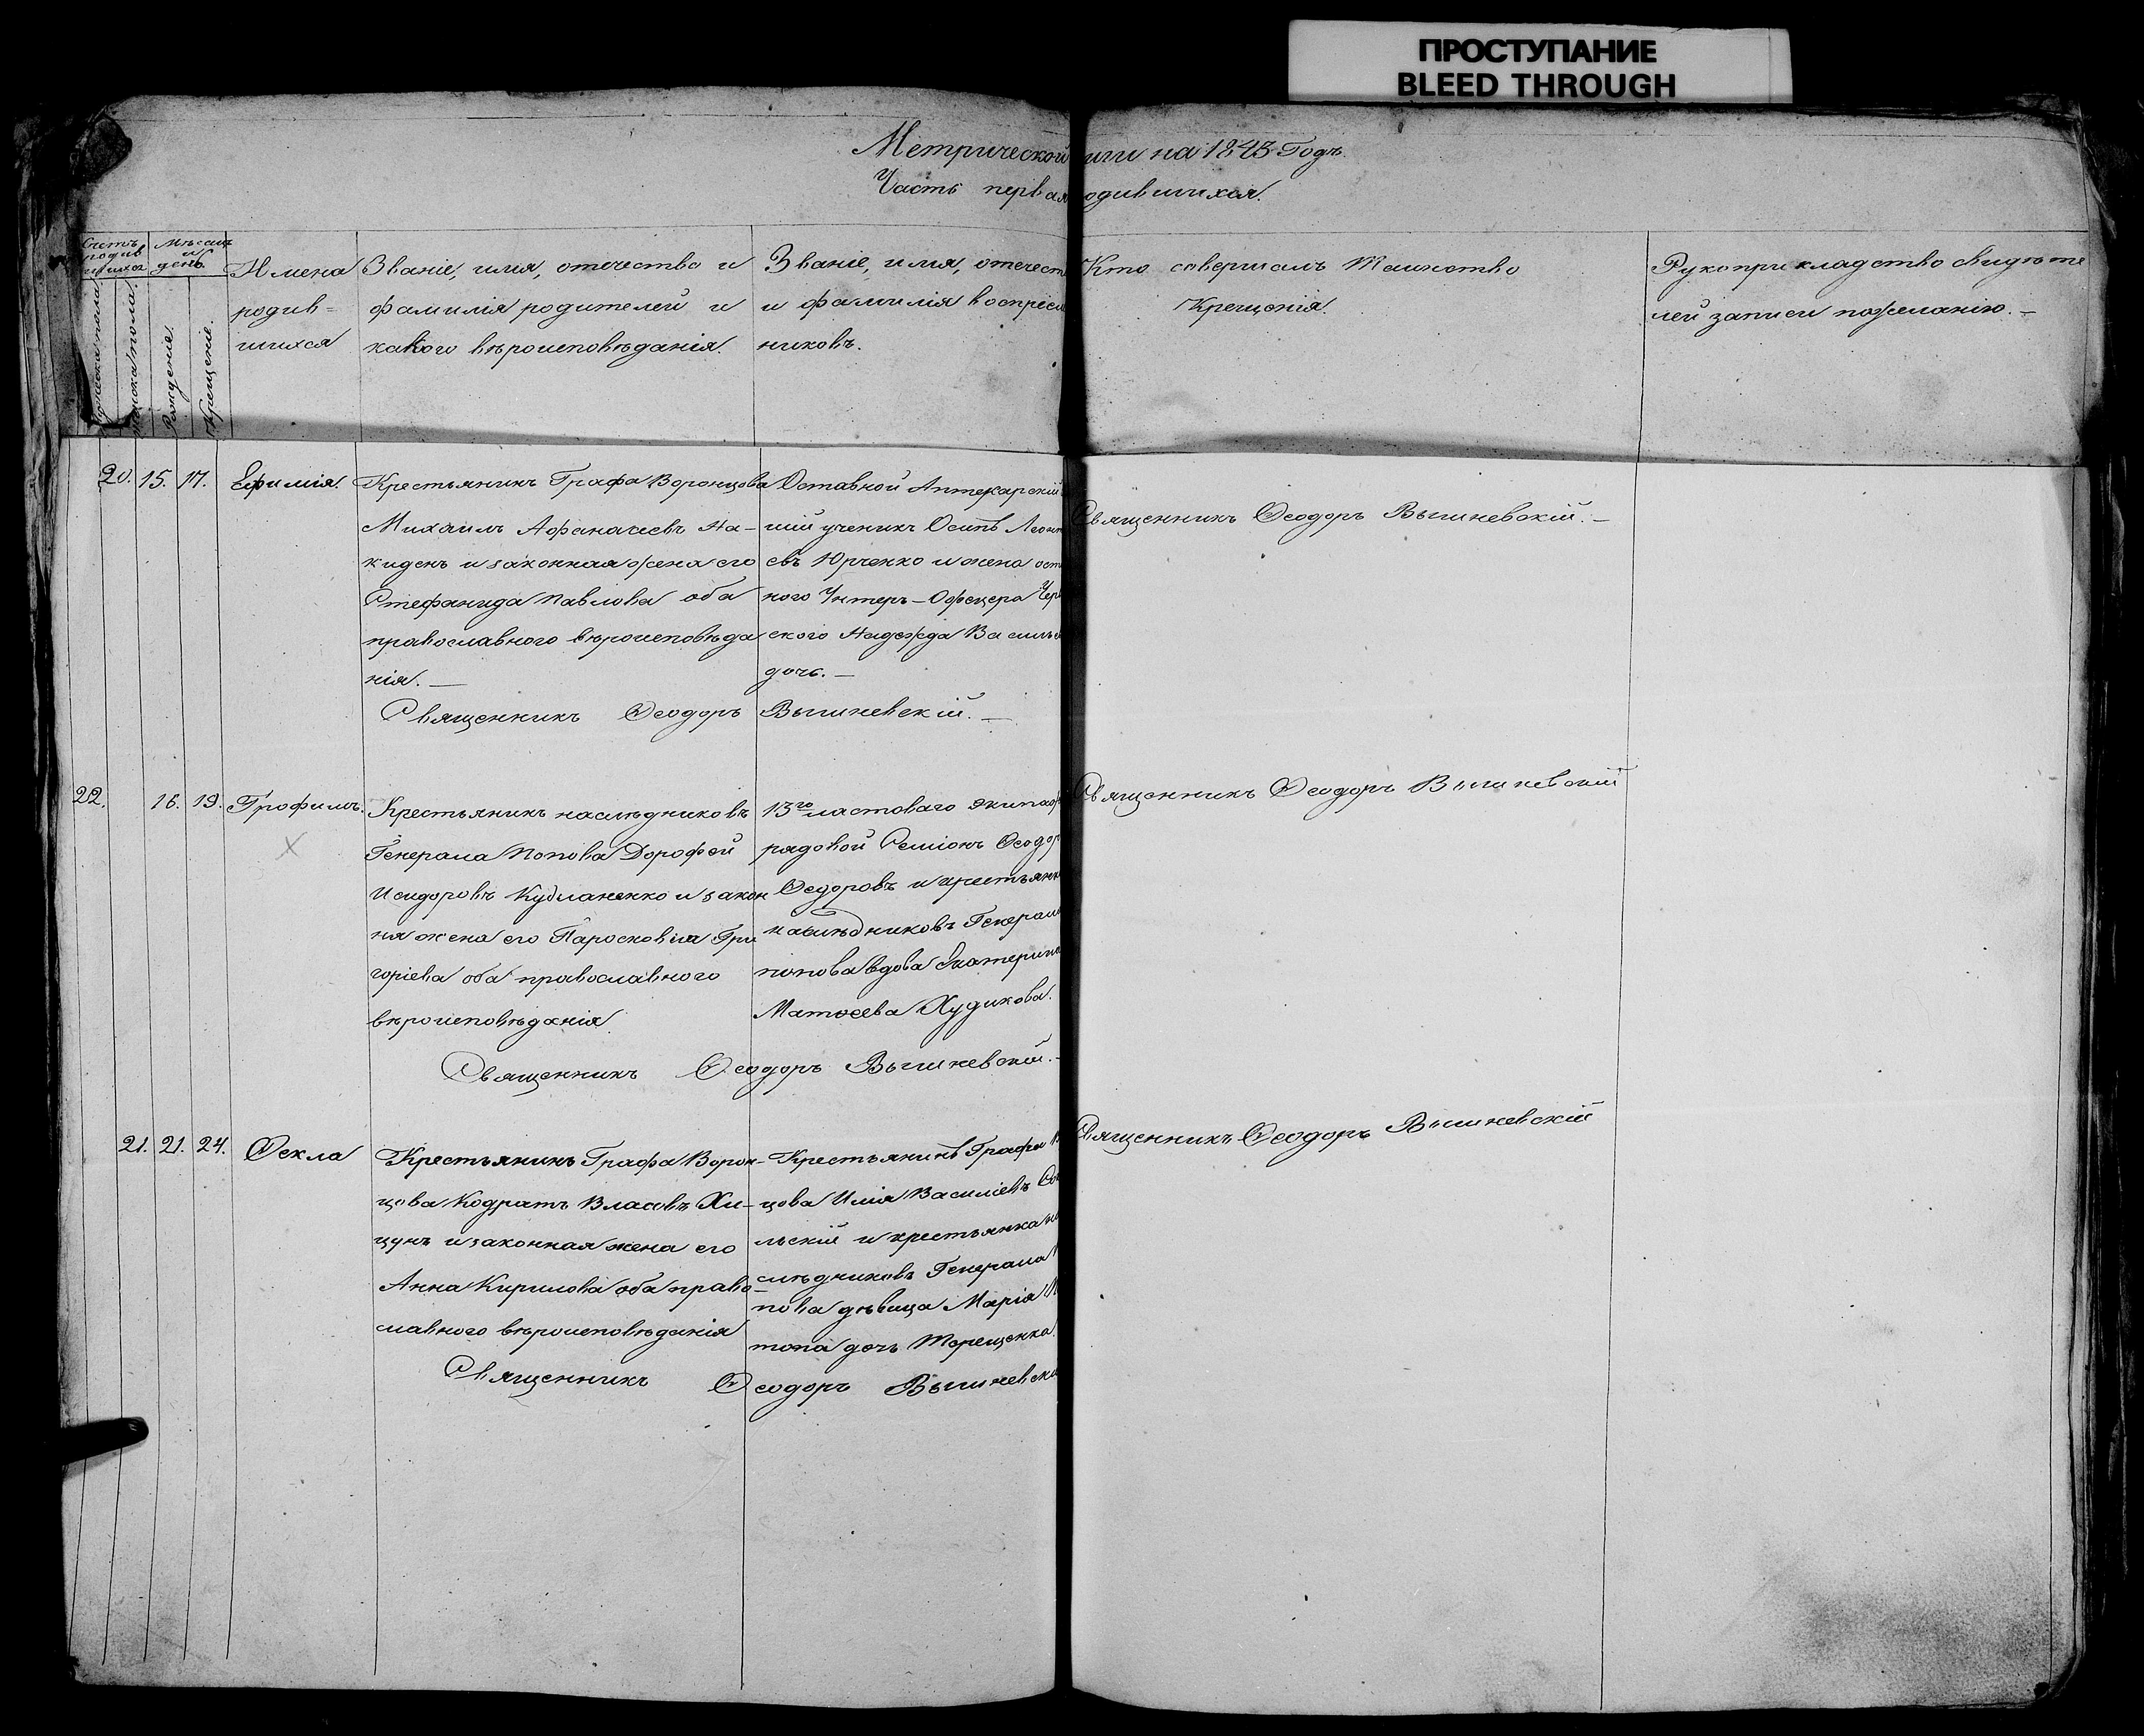 ПРОСТУПАНИЕ
BLEED THROUGH
Метрической иги на 1843 Годъ.
Часть первая одившихся.
Счетъ родившихся
Мѣсяцъ и день.
Мужска пола.
Женска пола.
Рожденіе.
Крещеніе.
Имена родив= шихся
Званіе, имя, отечество и
фамилія родителей и
какого вѣроисповѣданія.
Званіе, имя, отечест
и фамилія воспріем
никовъ.
Кто совершалъ Таинство
Крещенія.
Рукоприкладство свидѣте
лей записи по желанію. –
20. 15. 17. Ефимія.
Крестьянинъ Графа Воронцова
Михаилъ Афанасіевъ На-
киденъ и законная жена его
Стефанида Павлова оба
православного вѣроисповѣда
нія. –
Оставной Аптекарскій
шій ученикъ Осипъ Леонт
евъ Юрченко и жена ост
ного Унтеръ-Офецера Чер
ского Надежда Василь
дочь. –
Священникъ Ѳеодоръ Вышневскій. –
Священникъ Ѳеодоръ Вышневскій. –
22. 16. 19. Трофимъ.
Крестьянинъ наслѣдниковъ
Генерала Попова Дорофей
Исидоровъ Кудланенко и закон
ня жена его Паросковія Гри
горіева оба православного
вѣроисповѣданія
13го ластоваго экипаж
рядовой Семіонъ Ѳеодор
Ѳедоровъ и крестьянк
наслѣдниковъ Генерала
попова вдова Екатерина
Матѳеева Худикова.
Священникъ Ѳеодоръ Вышневскій. –
Священникъ Ѳеодоръ Вышневскій
21. 21. 24. Ѳекла
Крестьянинъ Графа Ворон-
цова Кодратъ Власовъ Хи-
цунъ и законная жена его
Анна Кирилова оба право-
славного вѣроисповѣданія
Крестьянинъ Графа В
цова Илія Василіевъ Со
льскій и крестьянка на
слѣдниковъ Генерала
пова дѣвица Марія
топа дочь Терещенко.
Священникъ Ѳеодоръ Вышневскі
Священникъ Ѳеодоръ Вышневскій